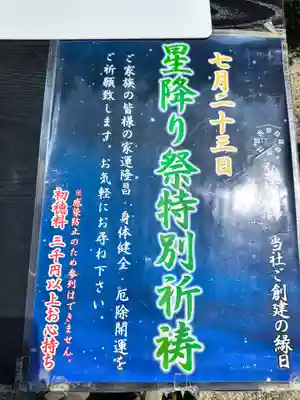 七月二十三日
当社ご創建の縁日
星降り祭特別祈祷
ご家族の皆様の家運隆昌・身体健全・厄除開運を
ご祈願致します。お気軽にお尋ね下さい。
※感染防止のため参列はできません。
初穂料 三千円以上お心持ち